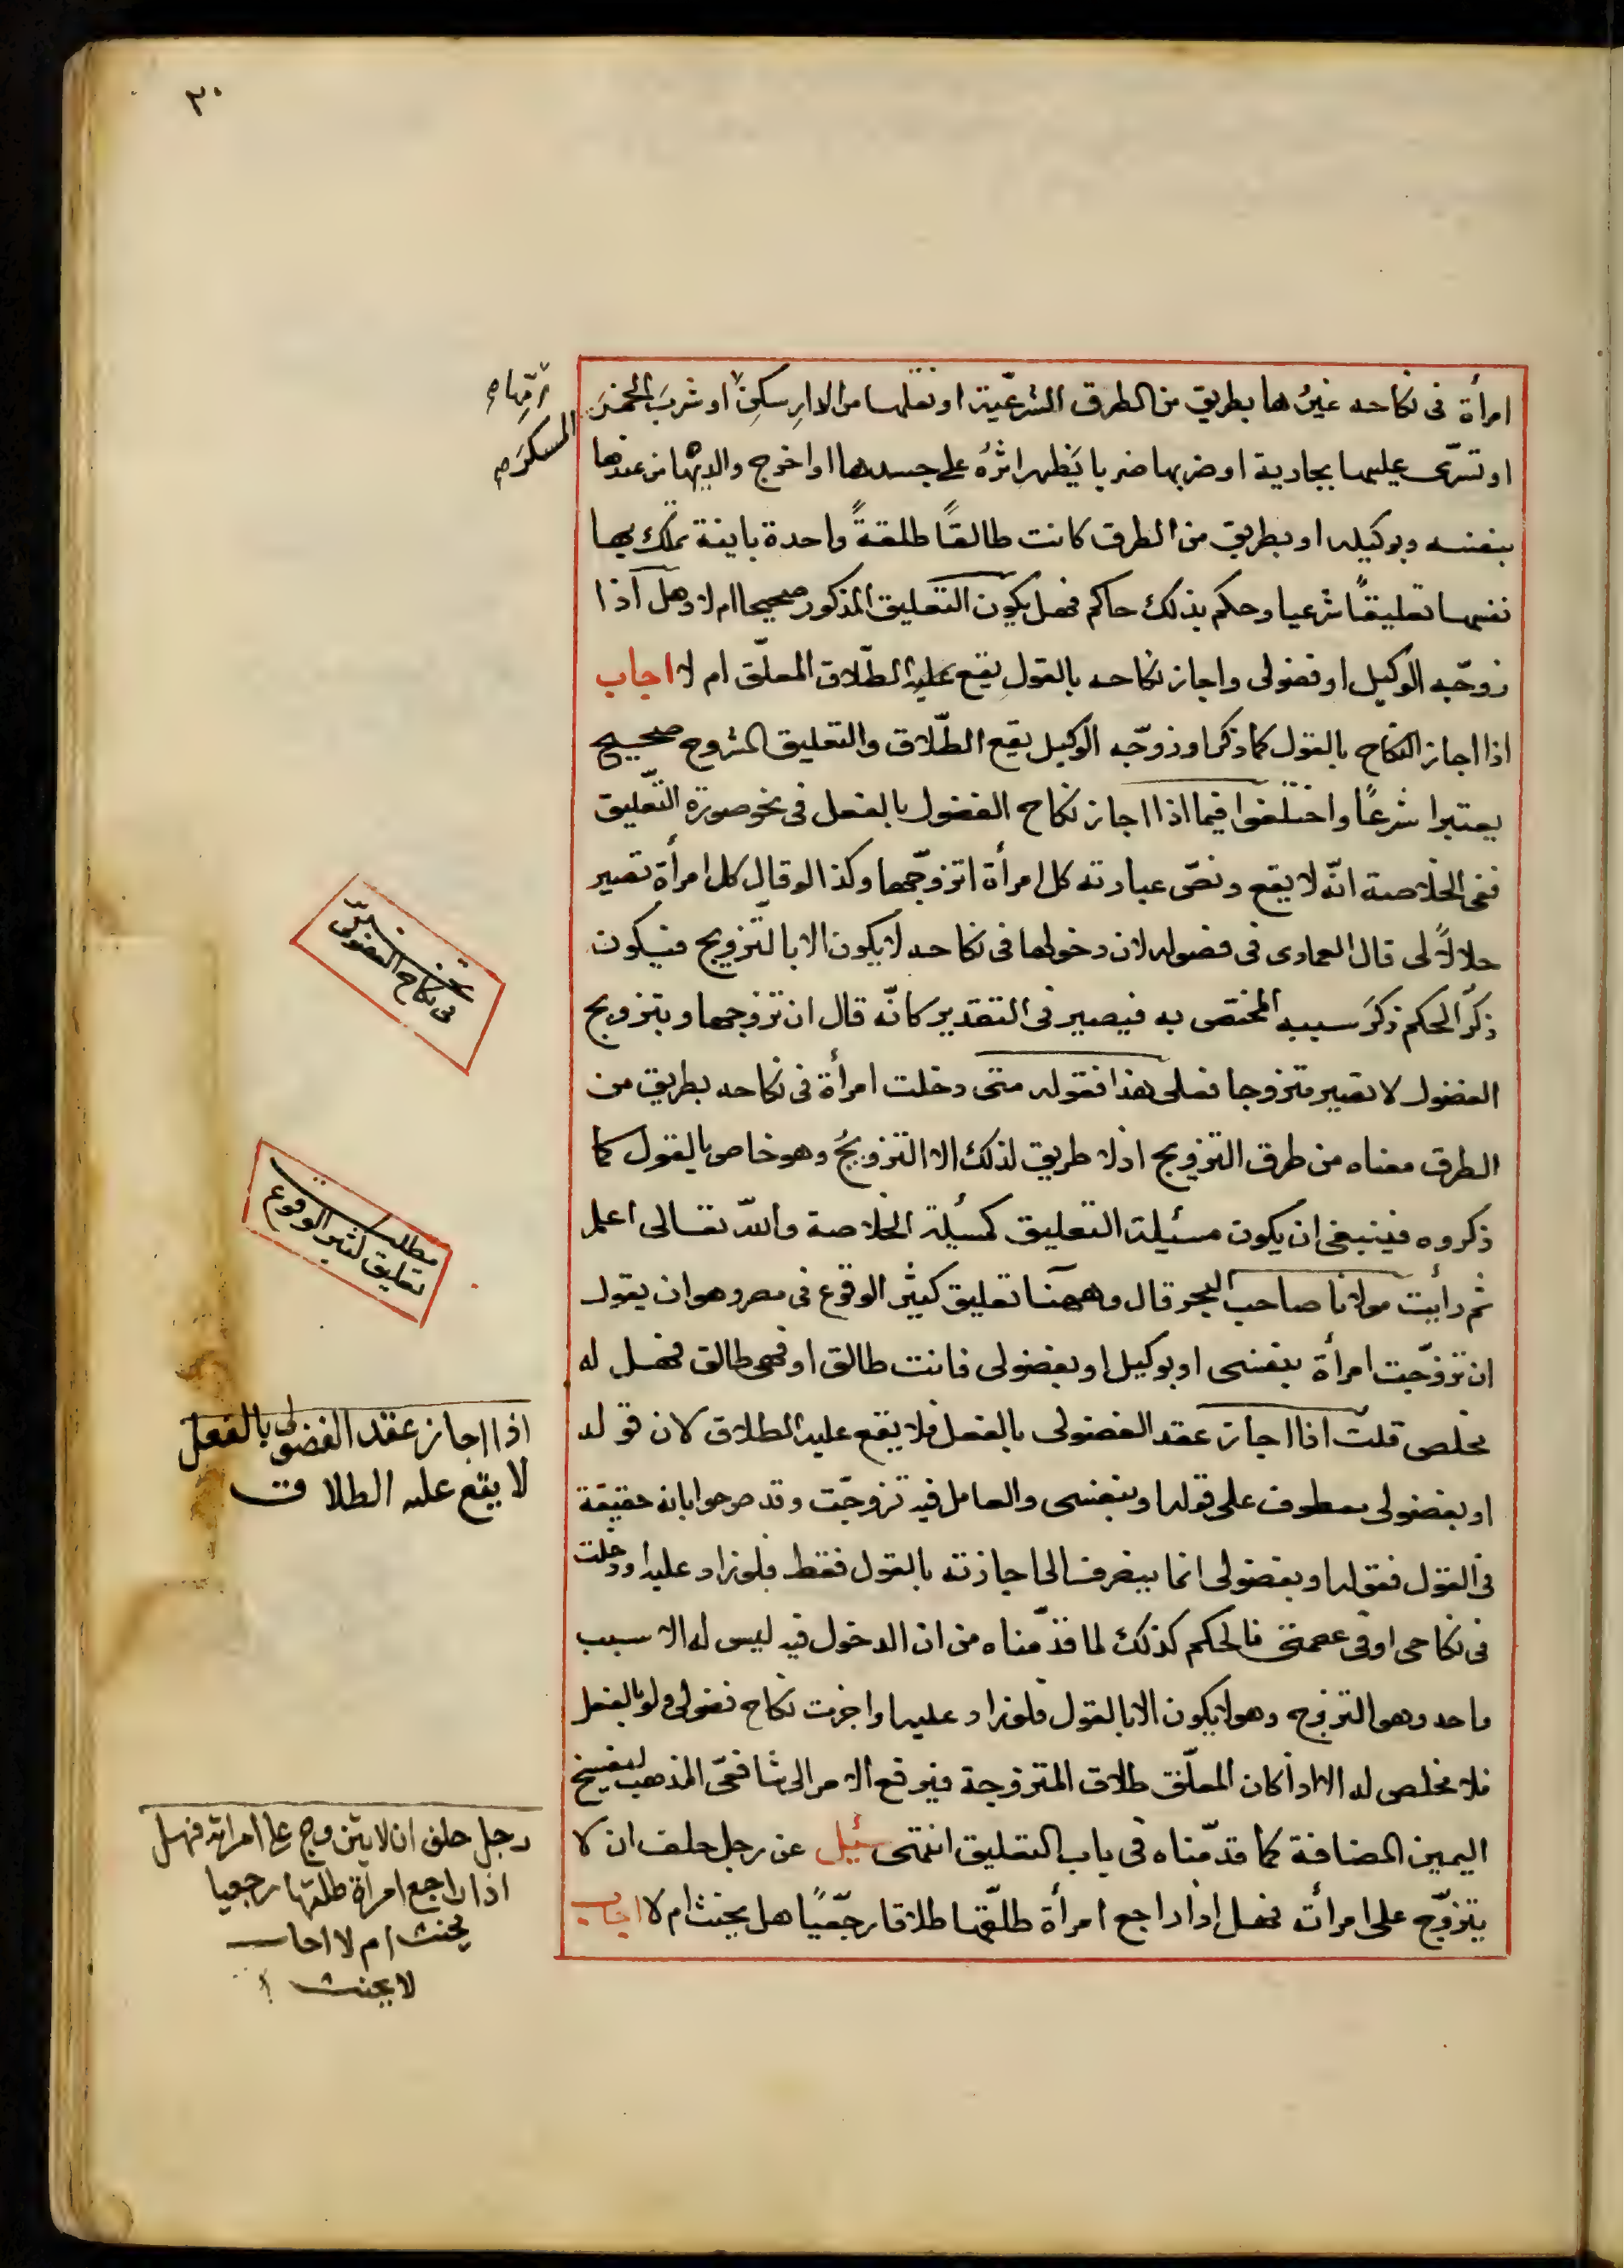 ٣٠
امرأة فى نكاحه غيرُها بطريق من الطرق الشرعيّة او نقلها من الدارِ سكنِ او شربَ الخمرَ
او تسرّى عليها بجارية او ضربها ضربا يَظهر اثرُهُ على جسدها او اخرج والديها من عندها
بنفسه وبوكيله او بطريق من الطرق كانت طالقًا طلقةً واحدة باينة تملك بها
نفسها تعليقًا شرعيا وحكم بذلك حاكم فهل يكون التعليق المذكور صحيحا ام لا وهل اذا
زوّجه الوكيل او فضولى واجاز نكاحه بالقول يقع عليه الطّلاق المعلّق ام لا اجاب
اذا اجاز النكاح بالقول كما ذكر او زوّجه الوكيل يقع الطّلاق والتعليق المشروح صحيح
يعتبرا شرعًا واختلفوا فيما اذا اجاز نكاح الفضول بالفعل فى نحو صورة التّعليق
ففى الخلاصة انّه لا يقع ونصّ عبارته كل امرأة اتزوّجها وكذا لو قال كل امرأة تصير
حلالاً لى قال العمادى فى فصوله لان دخولها فى نكاحه لا يكون الا بالتّزويج فيكون
ذكرُ الحكم ذكرَ سببه المختصّ به فيصير فى التقدير كانّه قال ان تزوجها وبتزويج
الفضول لا تصير متزوجا فعلى هذا فقوله متى دخلت امرأة فى نكاحه بطريق من
الطرق معناه من طرق التزويج اذ لا طريق لذلك الا التزويجُ وهو خاص بالقول كما
ذكروه فينبغى ان يكون مسئيلة التعليق كمسئيلة الخلاصة والله تعالى اعلم
ثم رأيت مولانا صاحب البحر قال وههنا تعليق كثير الوقوع فى مصر وهو ان يقول
ان تزوّجت امرأة بنفسى او بوكيل او بفضولى فانت طالق او فهى طالق فهل له
مخلص قلت اذا اجاز عقد الفضولى بالفعل فلا يقع عليه الطلاق لان قوله
او بفضولى معطوف على قوله او بنفسى والعامل فيه تزوجّت وقد صرحوا بانه حقيقة
فى القول فقوله او بفضولى انما ينصرف الى اجازته بالقول فقط فلو زاد عليه او دخلت
فى نكاحى او فى عصمتى فالحكم كذلك لما قدّمناه من ان الدخول فيه ليس له الا سبب
واحد وهو التزوج وهو لا يكون الا بالقول فلو زاد عليه او اجزت نكاح فضولى ولو بالفعل
فلا مخلص له الا اذا كان المعلّق طلاق المتزوجة فيرفع الامر الى شافعىّ المذهب ليفسخ
اليمين المضافة كما قدّمناه فى باب التعليق انتهى سئيل عن رجل حلف ان لا
يتزوّج على امرأته فهل اذا راجع امرأة طلّقها طلاقا رجعيًا هل يحنث ام لا اجاب
المسكر
فى نكاح الفضولى
مطلب
تعليق كثير الوقوع
اذا اجاز عقد الفضولى بالفعل
لا يقع عليه الطلاق
رجل حلف ان لا يتزوج على امراته فهل
اذا راجع امرأة طلقها رجعيا
يحنث ام لا اجاب
لا يحنث